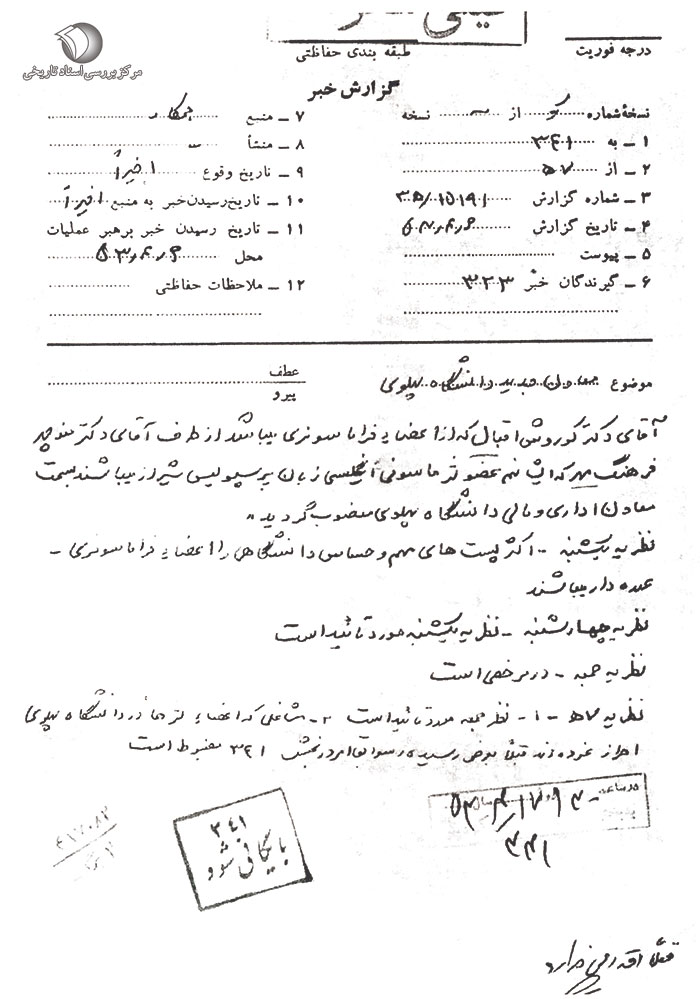 خیلی محرمانه
مرکز بررسی اسناد تاریخی
درجه فوریت
طبقه بندی حفاظتی
گزارش خبر
نسخهٔ شماره از نسخه
۱ ــ به ۳۴۱
۲ ــ از ۵۷
۳ ــ شماره گزارش
۴ ــ تاریخ گزارش
۵ ــ پیوست
۶ ــ گیرندگان خبر ۳۲۳
۷ ــ منبع همکار
۸ ــ منشأ
۹ ــ تاریخ وقوع اخیراً
۱۰ ــ تاریخ رسیدن خبر به منبع اخیراً
۱۱ ــ تاریخ رسیدن خبر برهبر عملیات
محل
۱۲ ــ ملاحظات حفاظتی
موضوع معاون جدید دانشگاه پهلوی
عطف
پیرو
آقای دکتر کوروش اقبال که از اعضاء فراماسونری میباشد از طرف آقای دکتر منوچهر
فرهنگ مهر که ایشان نیز عضو فراماسونی انگلیسی زبان پرسپولیس شیراز میباشند بسمت
معاون اداری و مالی دانشگاه پهلوی منصوب گردید
نظریه یکشنبه - اکثر پست های مهم و حساس دانشگاهی را اعضاء فراماسونری -
عهده دار میباشند
نظریه چهارشنبه - نظریه یکشنبه مورد تائید است
نظریه جمعه - در مرخصی است
نظریه ۵۷ - ۱ - نظر جمعه مورد تائید است ۲ - مشاغلی که اعضاء در دانشگاه پهلوی
احراز نموده اند قبلاً بعرض رسیده و سوابق امر در بخش ۳۴۱ مضبوط است
۳۴۱
بایگانی شود
۳۴۱
فعلاً اقدامی ندارد